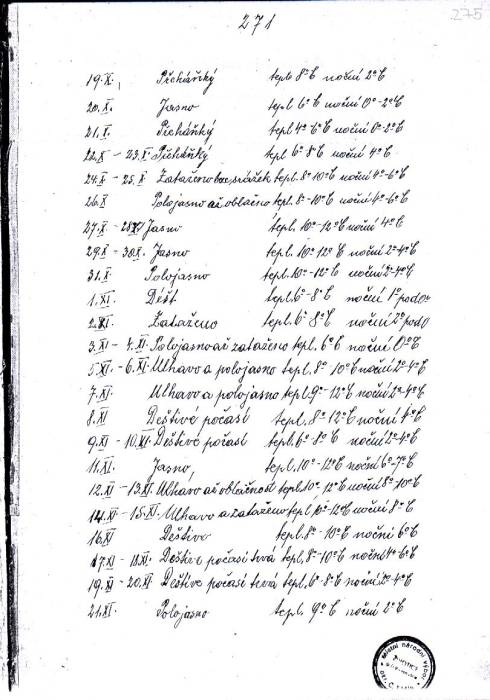 271
275
19.X. Přeháňky tepl. 8°C noční 2°C
20.X. Jasno tepl 6°C noční 0°-2°C
21.X. Přeháňky tepl 4°-6°C noční 0°-2°C
22.X - 23.X. Přeháňky tepl 6°-8°C noční 4°C
24.X - 25.X Zataženo bez srážek tepl. 8°-10°C noční 4°-6°C
26.X Polojasno až oblačno tepl. 8°-10°C noční 4°-6°C
27.X - 28.X Jasno tepl. 10°-12°C noční 4°C
29.X - 30.X. Jasno tepl. 10°-12°C noční 2°-4°C
31.X. Polojasno tepl. 10°-12°C noční 2°-4°C
1.XI. Déšť tepl. 6°-8°C noční 1° pod 0°
2.XI. Zataženo tepl. 6°-8°C noční 2° pod 0
3.XI - 4.XI. Polojasno až zataženo tepl. 6°C noční 0°C
5.XI. - 6.XI. Mlhavo a polojasno tepl. 8°-10°C noční 2°-4°C
7.XI. Mlhavo a polojasno tepl. 9°-12°C noční 2°-4°C
8.XI Deštivé počasí tepl. 8°-12°C noční 4°C
9.XI - 10.XI. Deštivé počasí tepl. 6°-8°C noční 2°-4°C
11.XI. Jasno, tepl. 10°-12°C noční 6°-7°C
12.XI - 13.XI. Mlhavo až oblačnost tepl. 10°-12°C noční 8°-10°C
14.XI - 15.XI. Mlhavo a zataženo tepl 10°-12°C noční 8°C
16.XI Deštivo tepl. 8°-10°C noční 6°C
17.XI - 18.XI. Deštivé počasí trvá tepl. 8°-10°C noční 4°-6°C
19.XI - 20.XI Deštivé počasí trvá tepl. 6°-8°C noční 2°-4°C
21.XI. Polojasno tepl. 9°C noční 2°C
Místní národní výbor